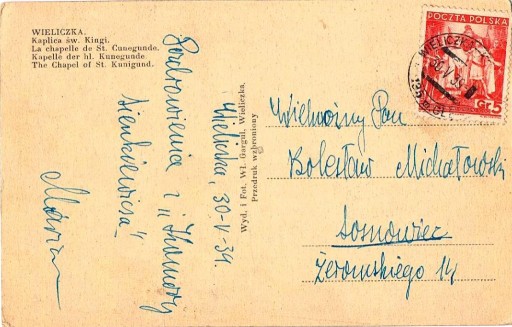 WIELICZKA.
Kaplica św. Kingi.
La chapelle de St. Cunegunde.
Kapelle der hl. Kunegunde.
The Chapel of St. Kunigund.
Wieliczka, 30-V-39.
Pozdrowienia z „Komory
Sienkiewicza”
Wyd. i Fot. Wł. Gargul, Wieliczka.
Przedruk wzbroniony
POCZTA POLSKA
GR 25
WIELICZKA
30 V 39
Wielmożny Pan
Bolesław Michałowski
Sosnowiec
Żeromskiego 14